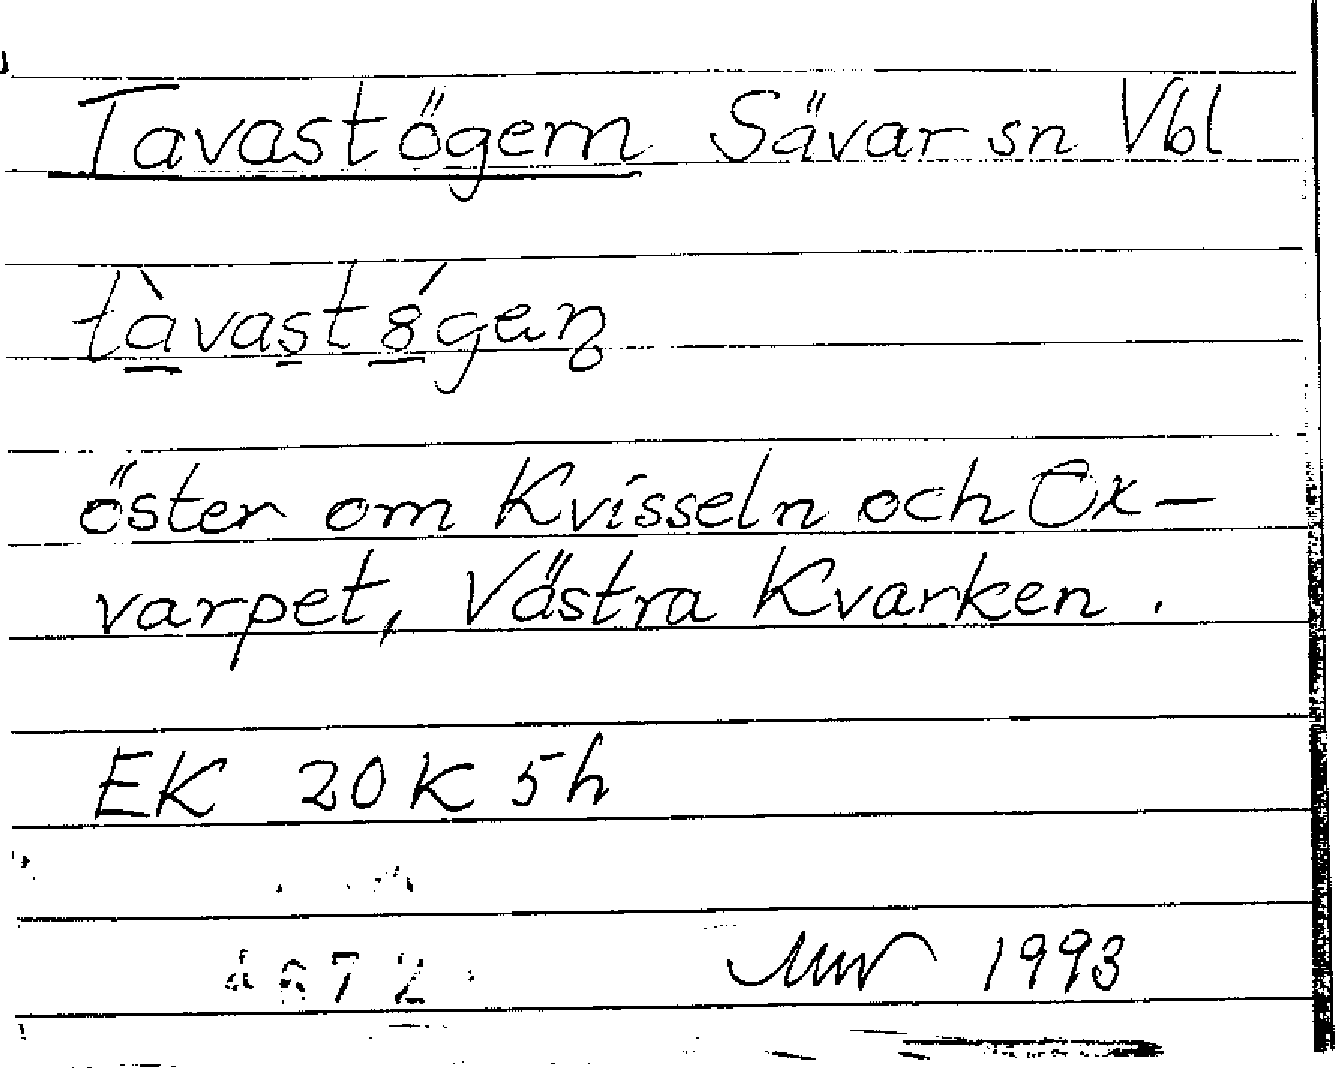 Tavastögern Sävar sn Vbl
öster om Kvisseln och Ox-
varpet, Västra Kvarken.
EK 20K 5h
1993